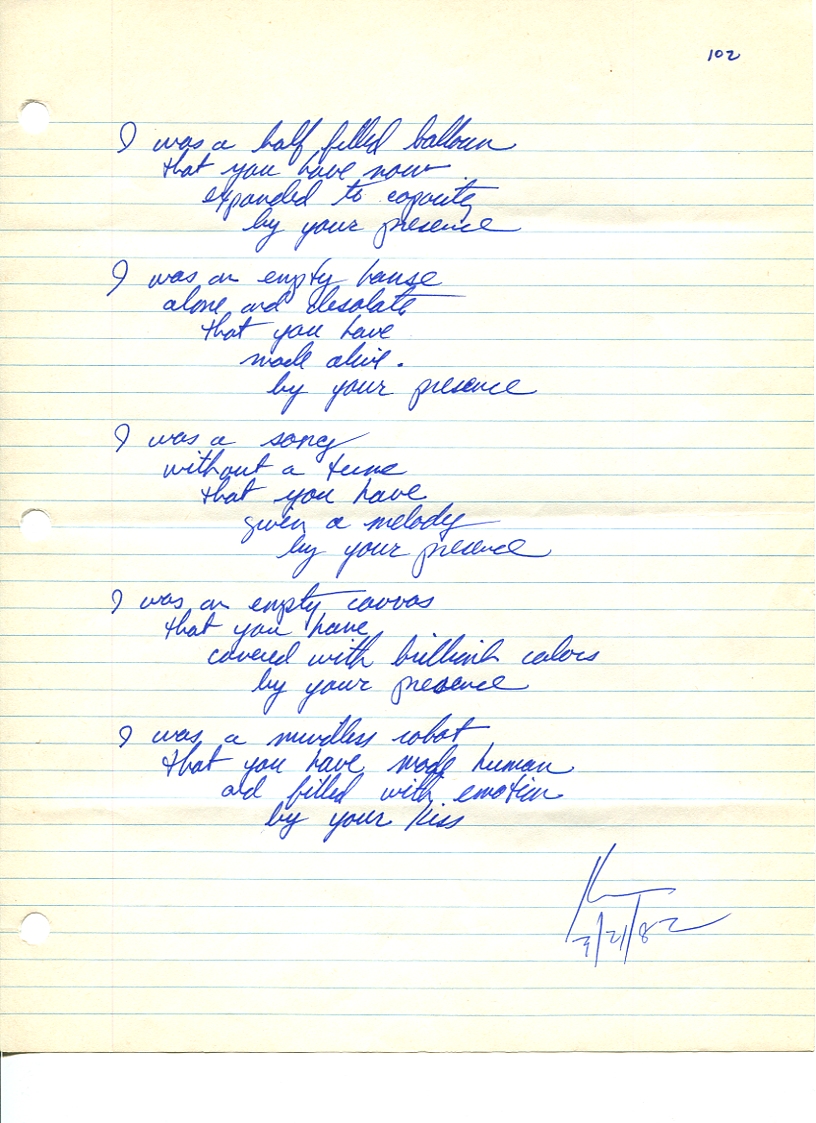 102
I was a half filled balloon
that you have now
expanded to capacity
by your presence
I was an empty house
alone and desolate
that you have
made alive.
by your presence
I was a song
without a tune
that you have
given a melody
by your presence
I was an empty canvas
that you have
covered with brilliant colors
by your presence
I was a mindless robot
that you have made human
and filled with emotion
by your kiss
/21/82